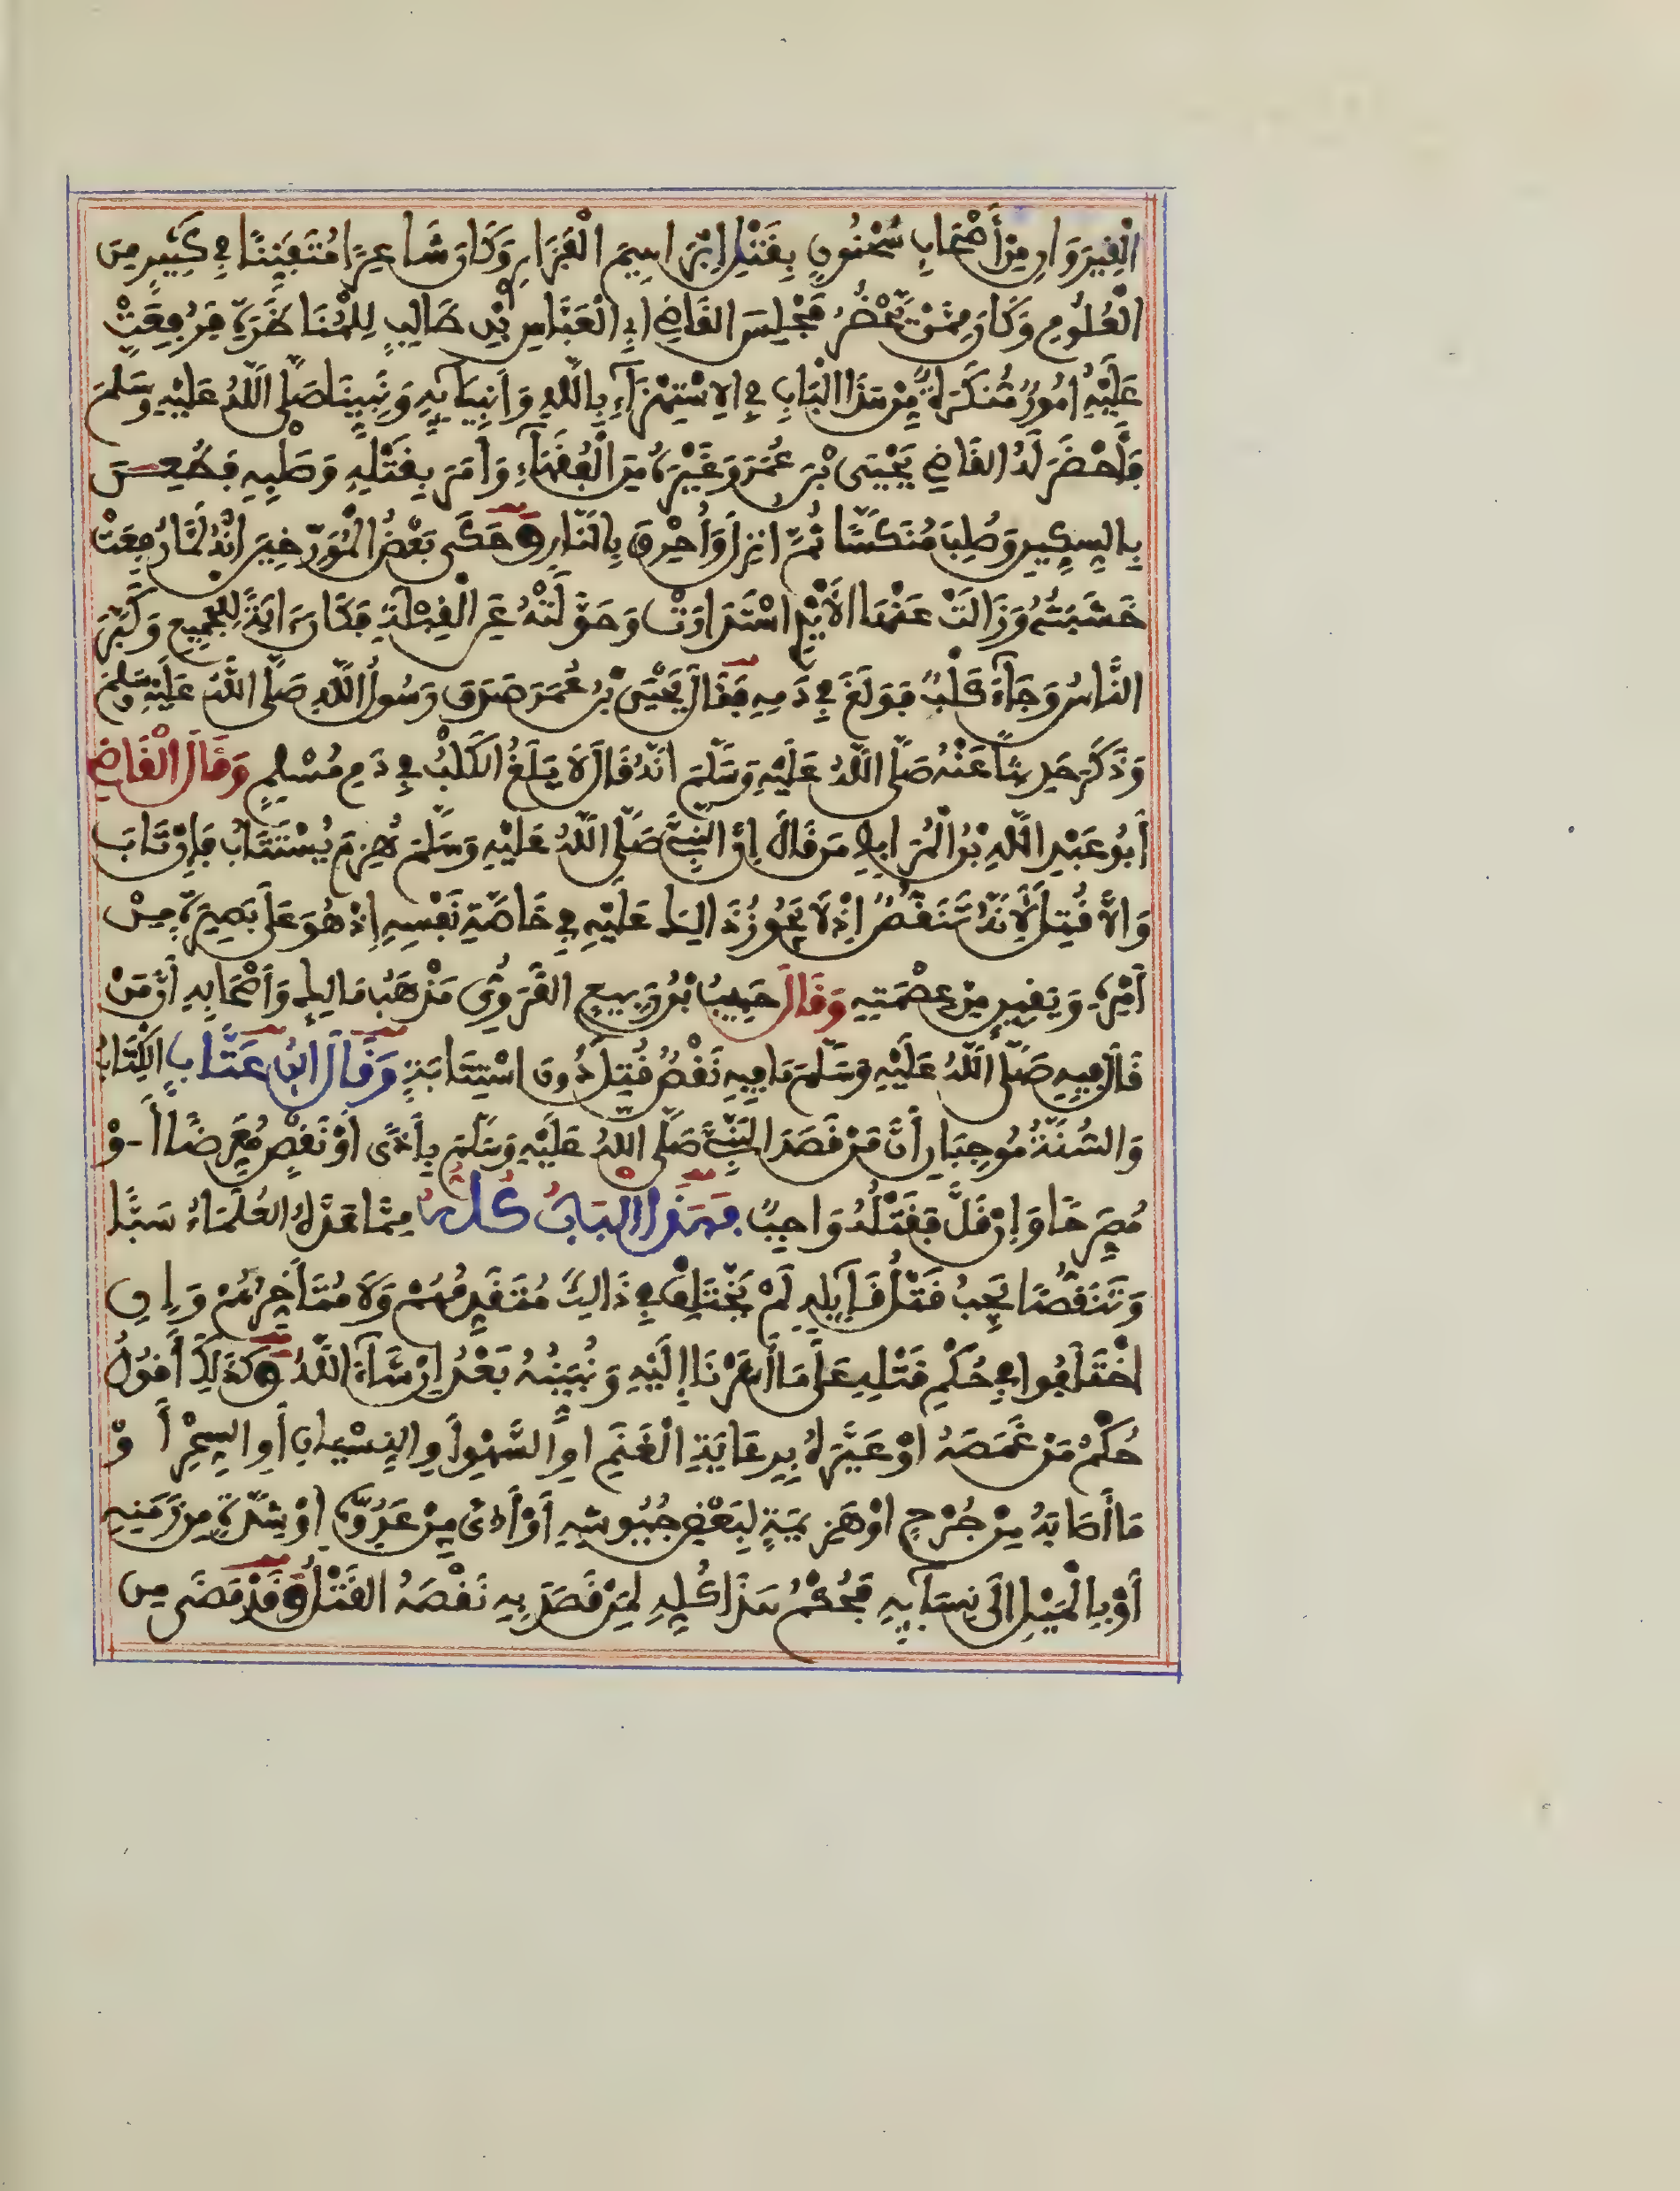 الْقَيْرَوَانِ مِنْ أَصْحَابِ سُحْنُونٍ بِقَتْلِ إِبْرَاهِيمَ الْفَزَارِي وَكَانَ شَاعِرًا مُتَفَنِّنًا فِي كَثِيرٍ مِنَ
الْعُلُومِ وَكَانَ مِمَّنْ يَحْضُرُ مَجْلِسَ الْقَاضِي أَبِي الْعَبَّاسِ بْنِ طَالِبٍ لِلْمُنَاظَرَةِ فَرُفِعَتْ
عَلَيْهِ أُمُورٌ مُنْكَرَةٌ مِنْ هَذَا الْبَابِ فِي الِاسْتِهْزَاءِ بِاللَّهِ وَأَنْبِيَائِهِ وَنَبِيِّنَا صَلَّى اللَّهُ عَلَيْهِ وَسَلَّمَ
فَأَحْضَرَ لَهُ الْقَاضِي يَحْيَى بْنَ عُمَرَ وَغَيْرَهُ مِنَ الْفُقَهَاءِ وَأَمَرَ بِقَتْلِهِ وَصَلْبِهِ فَطُعِنَ
بِالسِّكِّينِ وَصُلِبَ مُنَكَّسًا ثُمَّ أُنْزِلَ وَأُحْرِقَ بِالنَّارِ وَحَكَى بَعْضُ الْمُؤَرِّخِينَ أَنَّهُ لَمَّا رُفِعَتْ
خَشَبَتُهُ وَزَالَتْ عَنْهَا الْأَيْدِي اسْتَدَارَتْ وَحَوَّلَتْهُ عَنِ الْقِبْلَةِ فَكَانَ ءَايَةً لِلْجَمِيعِ وَكَبَّرَ
النَّاسُ وَجَاءَ كَلْبٌ فَوَلَغَ فِي دَمِهِ فَقَالَ يَحْيَى بْنُ عُمَرَ صَدَقَ رَسُولُ اللَّهِ صَلَّى اللَّهُ عَلَيْهِ وَسَلَّمَ
وَذَكَرَ حَدِيثًا عَنْهُ صَلَّى اللَّهُ عَلَيْهِ وَسَلَّمَ أَنَّهُ قَالَ لَا يَلَغُ الْكَلْبُ فِي دَمِ مُسْلِمٍ وَقَالَ الْقَاضِي
أَبُو عَبْدِ اللَّهِ بْنُ الْمُرَابِطِ مَنْ قَالَ إِنَّ النَّبِيَّ صَلَّى اللَّهُ عَلَيْهِ وَسَلَّمَ هُزِمَ يُسْتَتَابُ فَإِنْ تَابَ
وَإِلَّا قُتِلَ لِأَنَّهُ تَنَقُّصٌ إِذْ لَا يَجُوزُ ذَالِكَ عَلَيْهِ فِي خَاصَّةِ نَفْسِهِ إِذْ هُوَ عَلَى بَصِيرَةٍ مِنْ
أَمْرِهِ وَيَقِينٍ مِنْ عِصْمَتِهِ وَقَالَ حَبِيبُ بْنُ رَبِيعٍ الْقَرَوِيُّ مَذْهَبُ مَالِكٍ وَأَصْحَابِهِ أَنَّ مَنْ
قَالَ فِيهِ صَلَّى اللَّهُ عَلَيْهِ وَسَلَّمَ مَا فِيهِ نَقْصٌ قُتِلَ دُونَ اسْتِتَابَةٍ وَقَالَ ابْنُ عَتَّابٍ الْكِتَابُ
وَالسُّنَّةُ مُوجِبَانِ أَنَّ مَنْ قَصَدَ النَّبِيَّ صَلَّى اللَّهُ عَلَيْهِ وَسَلَّمَ بِأَذًى أَوْ نَقْصٍ مُعَرِّضًا أَ-وْ
مُصَرِّحًا وَإِنْ قَلَّ فَقَتْلُهُ وَاجِبٌ فَهَذَا الْبَابُ كُلُّهُ مِمَّا عَدَّهُ الْعُلَمَاءُ سَبًّا
وَتَنَقُّصًا يَجِبُ قَتْلُ قَائِلِهِ لَمْ يَخْتَلِفْ فِي ذَالِكَ مُتَقَدِّمُهُمْ وَلَا مُتَأَخِّرُهُمْ وَإِنِ
اخْتَلَفُوا فِي حُكْمِ قَتْلِهِ عَلَى مَا أَشَرْنَا إِلَيْهِ وَنُبَيِّنُهُ بَعْدُ إِنْ شَاءَ اللَّهُ وَكَذَلِكَ أَقُولُ
حُكْمُ مَنْ غَمَصَهُ أَوْ عَيَّرَهُ بِرِعَايَةِ الْغَنَمِ أَوِ السَّهْوِ أَوِ النِّسْيَانِ أَوِ السِّحْرِ أَ وْ
مَا أَصَابَهُ مِنْ جُرْحٍ أَوْ هَزِيمَةٍ لِبَعْضِ جُيُوشِهِ أَوْ أَذًى مِنْ عَدُوِّهِ أَوْ شِدَّةٍ مِنْ زَمَنِهِ
أَوْ بِالْمَيْلِ إِلَى نِسَائِهِ فَحُكْمُ هَذَا كُلِّهِ لِمَنْ قَصَدَ بِهِ نَقْصَهُ الْقَتْلُ وَقَدْ مَضَى مِنْ